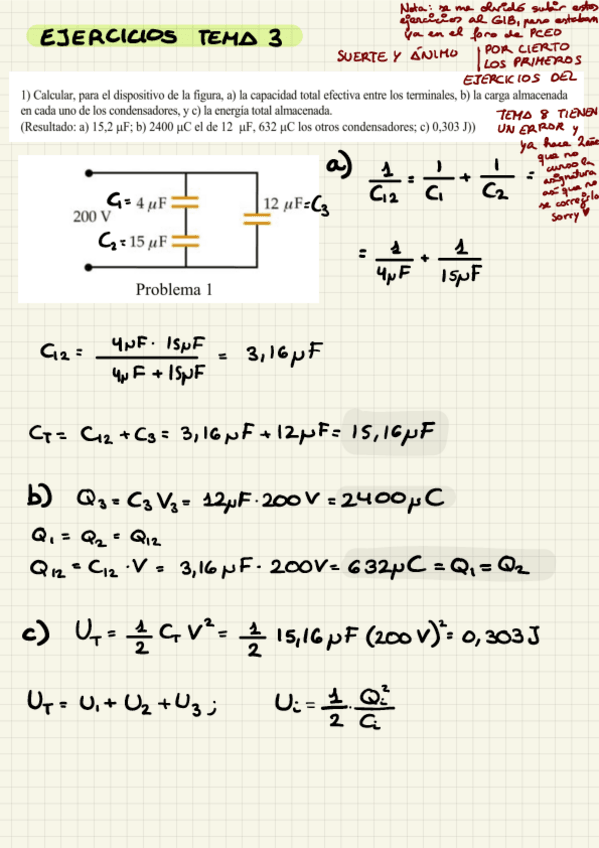 EJERCICIOS TEMA 3
Nota: se me olvidó subir estos
ejercicios al GIB, pero estaban
ya en el foro de PCEO
SUERTE Y ÁNIMO
POR CIERTO
LOS PRIMEROS
EJERCICIOS DEL
TEMA 8 TIENEN
UN ERROR y
ya hace 2 años
que no
curso la
asignatura
así que no
se corregirlo
Sorry ♥
1) Calcular, para el dispositivo de la figura, a) la capacidad total efectiva entre los terminales, b) la carga almacenada
en cada uno de los condensadores, y c) la energía total almacenada.
(Resultado: a) 15,2 μF; b) 2400 μC el de 12 μF, 632 μC los otros condensadores; c) 0,303 J))
C₁= 4 μF
12 μF=C₃
200 V
C₂= 15 μF
Problema 1
a) 1/C₁₂ = 1/C₁ + 1/C₂ =
= 1/4μF + 1/15μF
C₁₂ = 4μF · 15μF / 4μF + 15μF = 3,16μF
C_T = C₁₂ + C₃ = 3,16μF + 12μF = 15,16μF
b) Q₃ = C₃ V₃ = 12μF · 200V = 2400μC
Q₁ = Q₂ = Q₁₂
Q₁₂ = C₁₂ · V = 3,16μF · 200V = 632μC = Q₁ = Q₂
c) U_T = 1/2 C_T V² = 1/2 15,16μF (200V)² = 0,303J
U_T = U₁ + U₂ + U₃ ; Uᵢ = 1/2 · Qᵢ²/Cᵢ